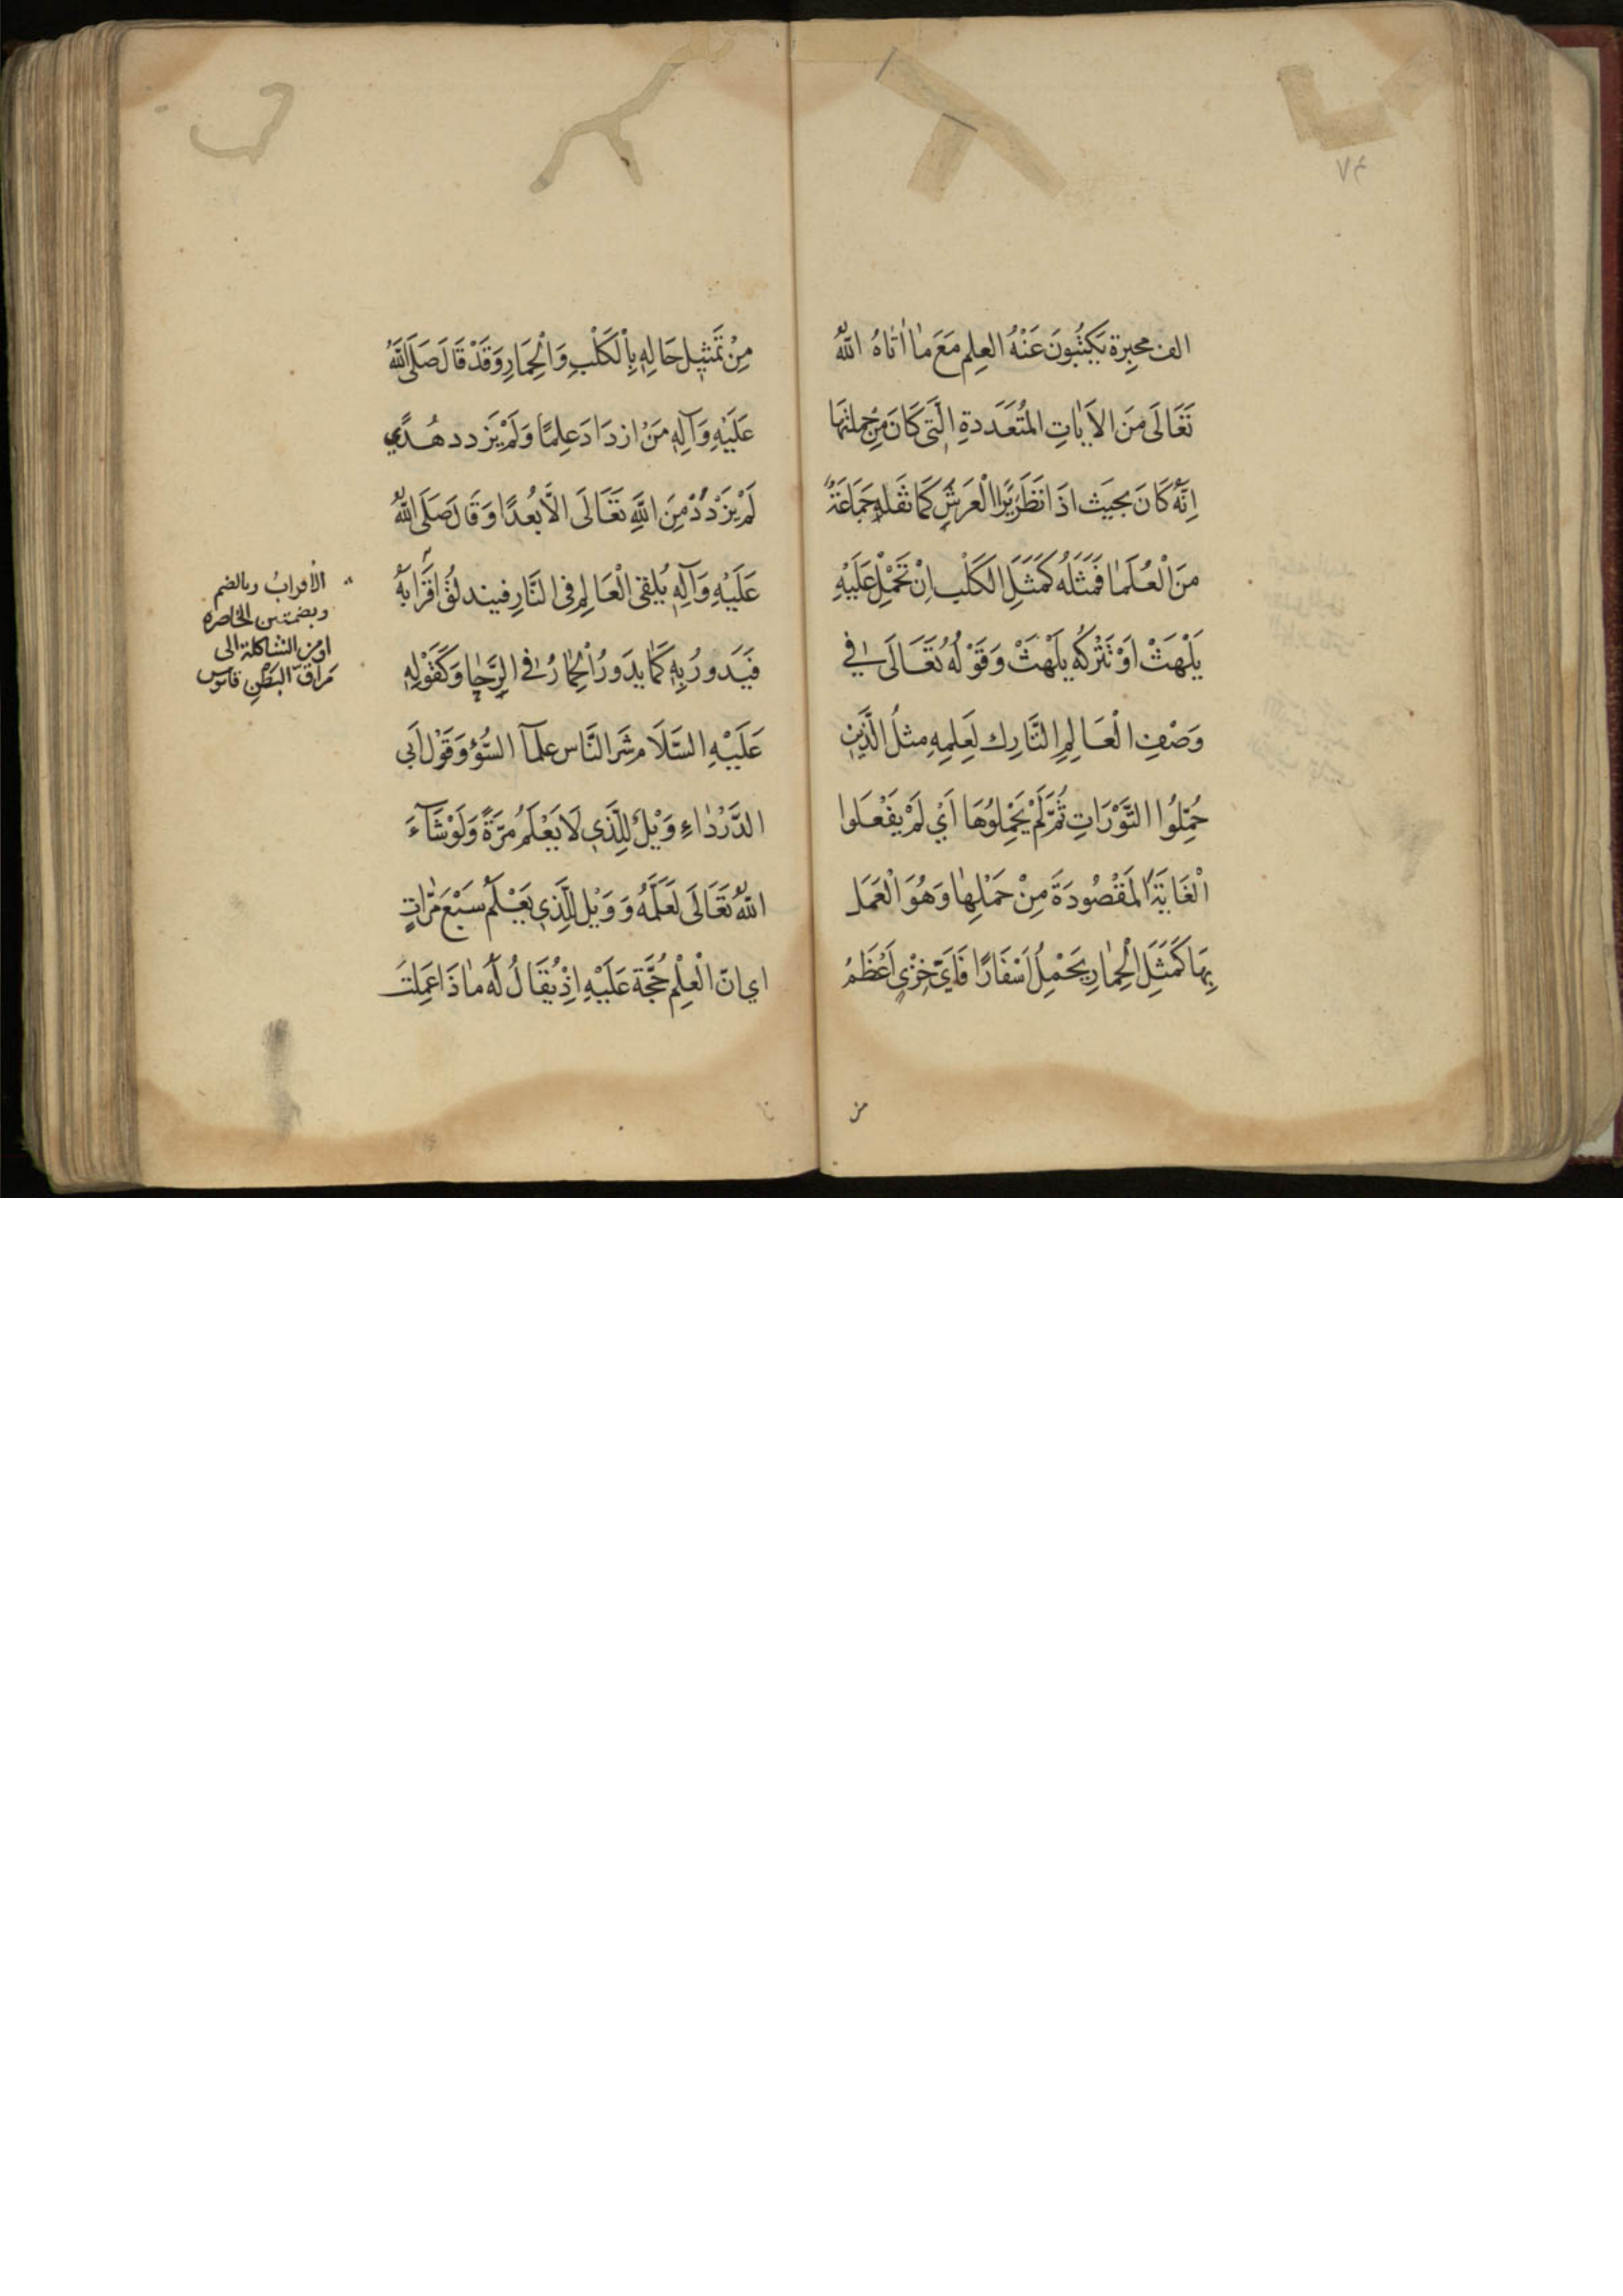 ٧٤
الف محبرة يَكتُبُونَ عَنْهُ العِلم مَعَ مٰا اٰتاهُ اللّٰهُ
تَعَالَى مِنَ الآيَاتِ المُتَعَدَدةِ الَّتي كَانَ مِنْ جملتهَا
اِنَّهُ كَانَ بحَيث اذَا نَظَرَ يَرَا الْعَرشِ كَمَا نَقَلهُ جَمَاعَةٌ
مِنَ الْعُلَمٰا فَمَثلهُ كَمَثَلِ الكَلْب اِنْ تَحْمِلْ عَلَيْهِ
يَلْهَثْ اَوْ تَتْركهُ يَلْهثْ وَقَوْلُهُ تَعَالَى في
وَصْفِ الْعَالِمِ التَّارِك لِعَلِمِهِ مثلُ الَّذَينِ
حُمِّلُوا التَّوْرَاتِ ثُمَّ لَمْ يَحْمِلُوهَا اَيْ لَمْ يَفْعَلوا
الْغَايَةَ المَقْصُودَةَ مِنْ حَمْلِهٰا وَهُوَ الْعَمَل
بِهَا كَمَثَلِ الْحِمٰارِ يَحْمِلُ اَسْفَارًا فَاَيّ خِزْيٍ اَعْظَمُ
من
مِنْ تَمَثيِلِ حَالِهِ بِاْلكَلْبِ وَالْحِمَارِ وَقَدْ قَالَ صَلَّى اللّٰهُ
عَلَيْهِ وَآلِهِ مَنْ ازدَادَ عِلمًا وَلَمْ يَزدد هُدًي
لَمْ يَزْدَدْ مِنَ اللّٰهِ تَعَالَى الَّا بُعدًا وَقَالَ صَلَّى اللّٰهُ
عَلَيْهِ وَآلِهِ يُلقى الْعَالِمِ في النَّارِ فيندلقُ اقْرَابهُ
فَيَدورُ بِهِ كَمٰا يدَورُ الْحِمٰارُ في الرَّحٰا وَكَقَوْلِهِ
عَلَيْهِ السَّلَام شَر النَّاس علمآ السُّؤ وَقَوْل اَبي
الدَّرْدٰاءِ وَيْلٌ لِلَّذي لَا يَعْلَمُ مَرّةً وَلَوْ شَآءَ
اللّٰهُ تَعَالَى لَعَلَّمَهُ وَ وَيْل لِلَّذي يَعْلَمُ سَبْعَ مَرّٰاتٍ
اي انّ الْعِلْم حُجَّة عَلَيْهِ اِذْ يُقَالُ لَهُ مٰا ذَا عَمِلتَ
الأقرابُ وبالضم
وبضمتين الخاصره
او من الشاكلة الى
مَراقّ البَطْنِ قاموس